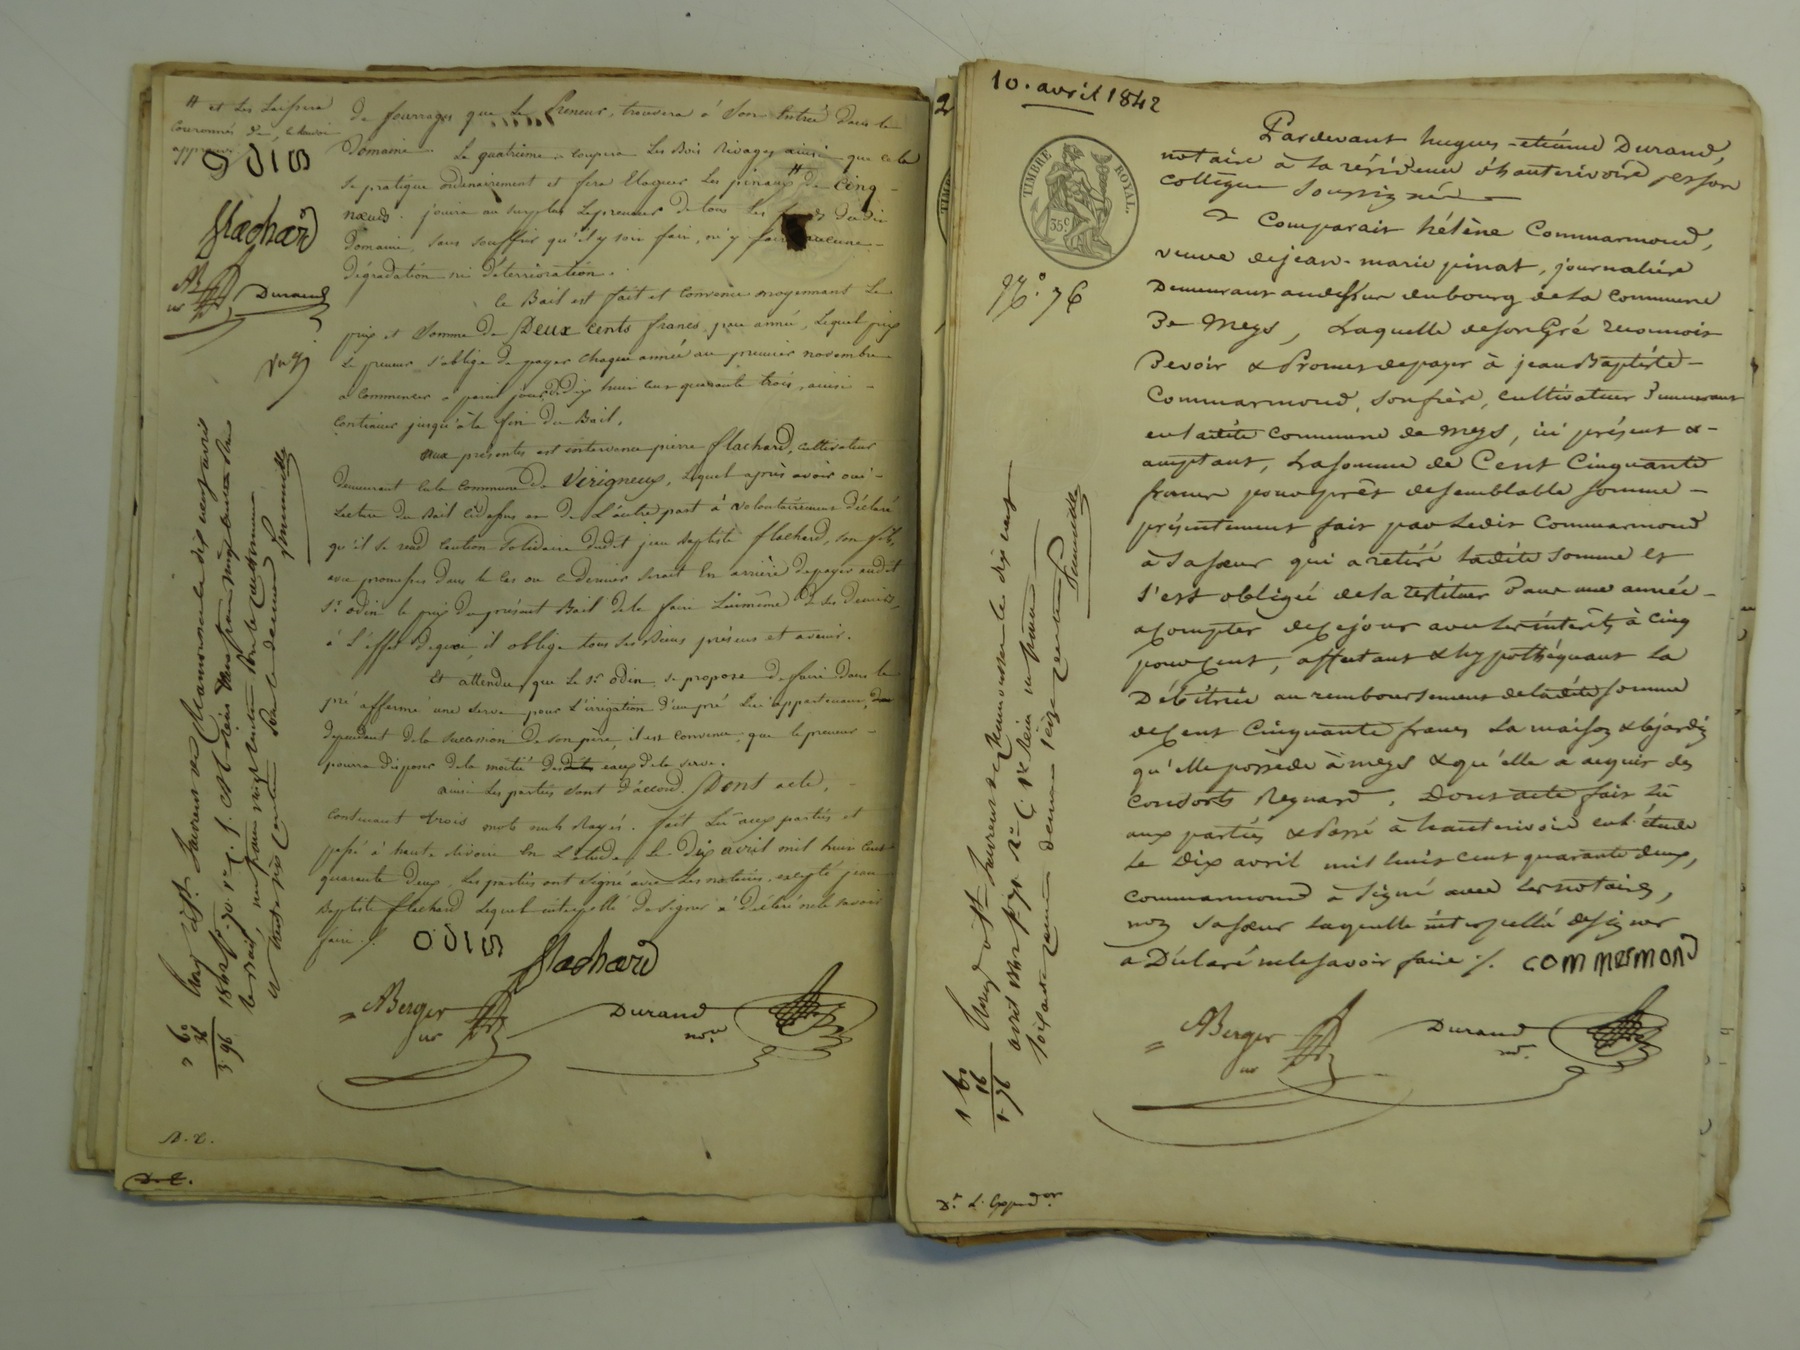 # et Les Laissera
Couronnés de, chacun
approuvé
ODIN
flachard
Berger
Durand
de fourrages que Le Preneur, trouvera à Son Entrée dans le
Domaine. Le quatrième coupera Les Bois Rivages ainsi que cela
se pratique ordinairement et fera Elaguer Les pinaux # de Cinq
nœuds. jouira au surplus Lepreneur de tous Les fonds dudit
Domaine, sans souffrir qu'il y soit fait, ni y faire aucune
dégradation ni déterrioration.
Ce Bail est fait et Convenu moyennant Le
prix et Somme de Deux Cents francs par année, Lequel prix
Le preneur s'oblige de payer chaque année au premier novembre
a commencer a pareil jour de dix huit cent quarante trois, ainsi
Continuer jusqu'à la fin du Bail.
Aux présentes est intervenu pierre flachard, cultivateur
demeurant en la commune de Verigneux, Lequel après avoir oui
Lecture du Bail cidessus et de L'autre part à volontairement déclaré
qu'il se rend Caution Solidaire dudit jean Baptiste flachard, son fils,
avec promesse dans le Cas ou ce dernier serait En arrière depayer audit
Sr. odin le prix du présent Bail de le faire Luimême de Ses deniers,
à L'effet dequoi, il oblige tous ses Biens présens et avenir.
Et attendu que Le Sr. odin, se propose de faire dans le
pré affermé une Serve pour L'irrigation d'un pré Lui appartenant,
dependant de la succession de son père, il est convenu que le preneur
pourra disposer de la moitié des eaux de la serve.
ainsi Les parties sont d'accord. Dont acte,
contenant trois mots nuls Rayés. fait Lu aux parties et
passé à haute Rivoire En L'etude, Le Dix avril mil huit Cent
quarante deux, Les parties ont signé avec Les notaires, excepté jean
Baptiste flachard Lequel interpellé de signer à déclaré ne le savoir
faire ./.
ODIN
flachard
Berger
nre
Durand
nre.
10. avril 1842
TIMBRE ROYAL.
35c
No. 76
Pardevant hugues-etienne Durand,
notaire à la résidence d'hauterivoire & son
Collègue Soussignés
Comparait hélène Commarmond,
veuve de jean-marie pinat, journalière
Demeurant audessur du bourg de la Commune
De Meys, Laquelle de son Gré reconnoit
Devoir & Promet depayer à jean Baptiste
Commarmond, son frère, cultivateur Demeurant
en ladite Commune de Meys, ici présent &
acceptant, La somme de Cent Cinquante
francs pour prêt de semblable somme
présentement fait par Ledit Commarmond
à Sa sœur qui a retiré ladite somme et
s'est obligée de la restituer Dans une année
acompter de cejour avec Les intérêts à Cinq
pour Cent, affectant & hypothéquant La
Débitrice au remboursement de ladite somme
de Cent Cinquante francs La maison & le jardin
qu'elle possède à meys & qu'elle a acquis des
consorts Reynard, Dont acte fait Lu
aux parties & Passé à hauterivoire en L'étude
Le Dix avril mil huit cent quarante deux,
commarmond à Signé avec Les notaires,
non Sa sœur Laquelle interpellée de signer
a Déclaré ne le savoir faire ./.
commermond
Berger
nre
Durand
nre.